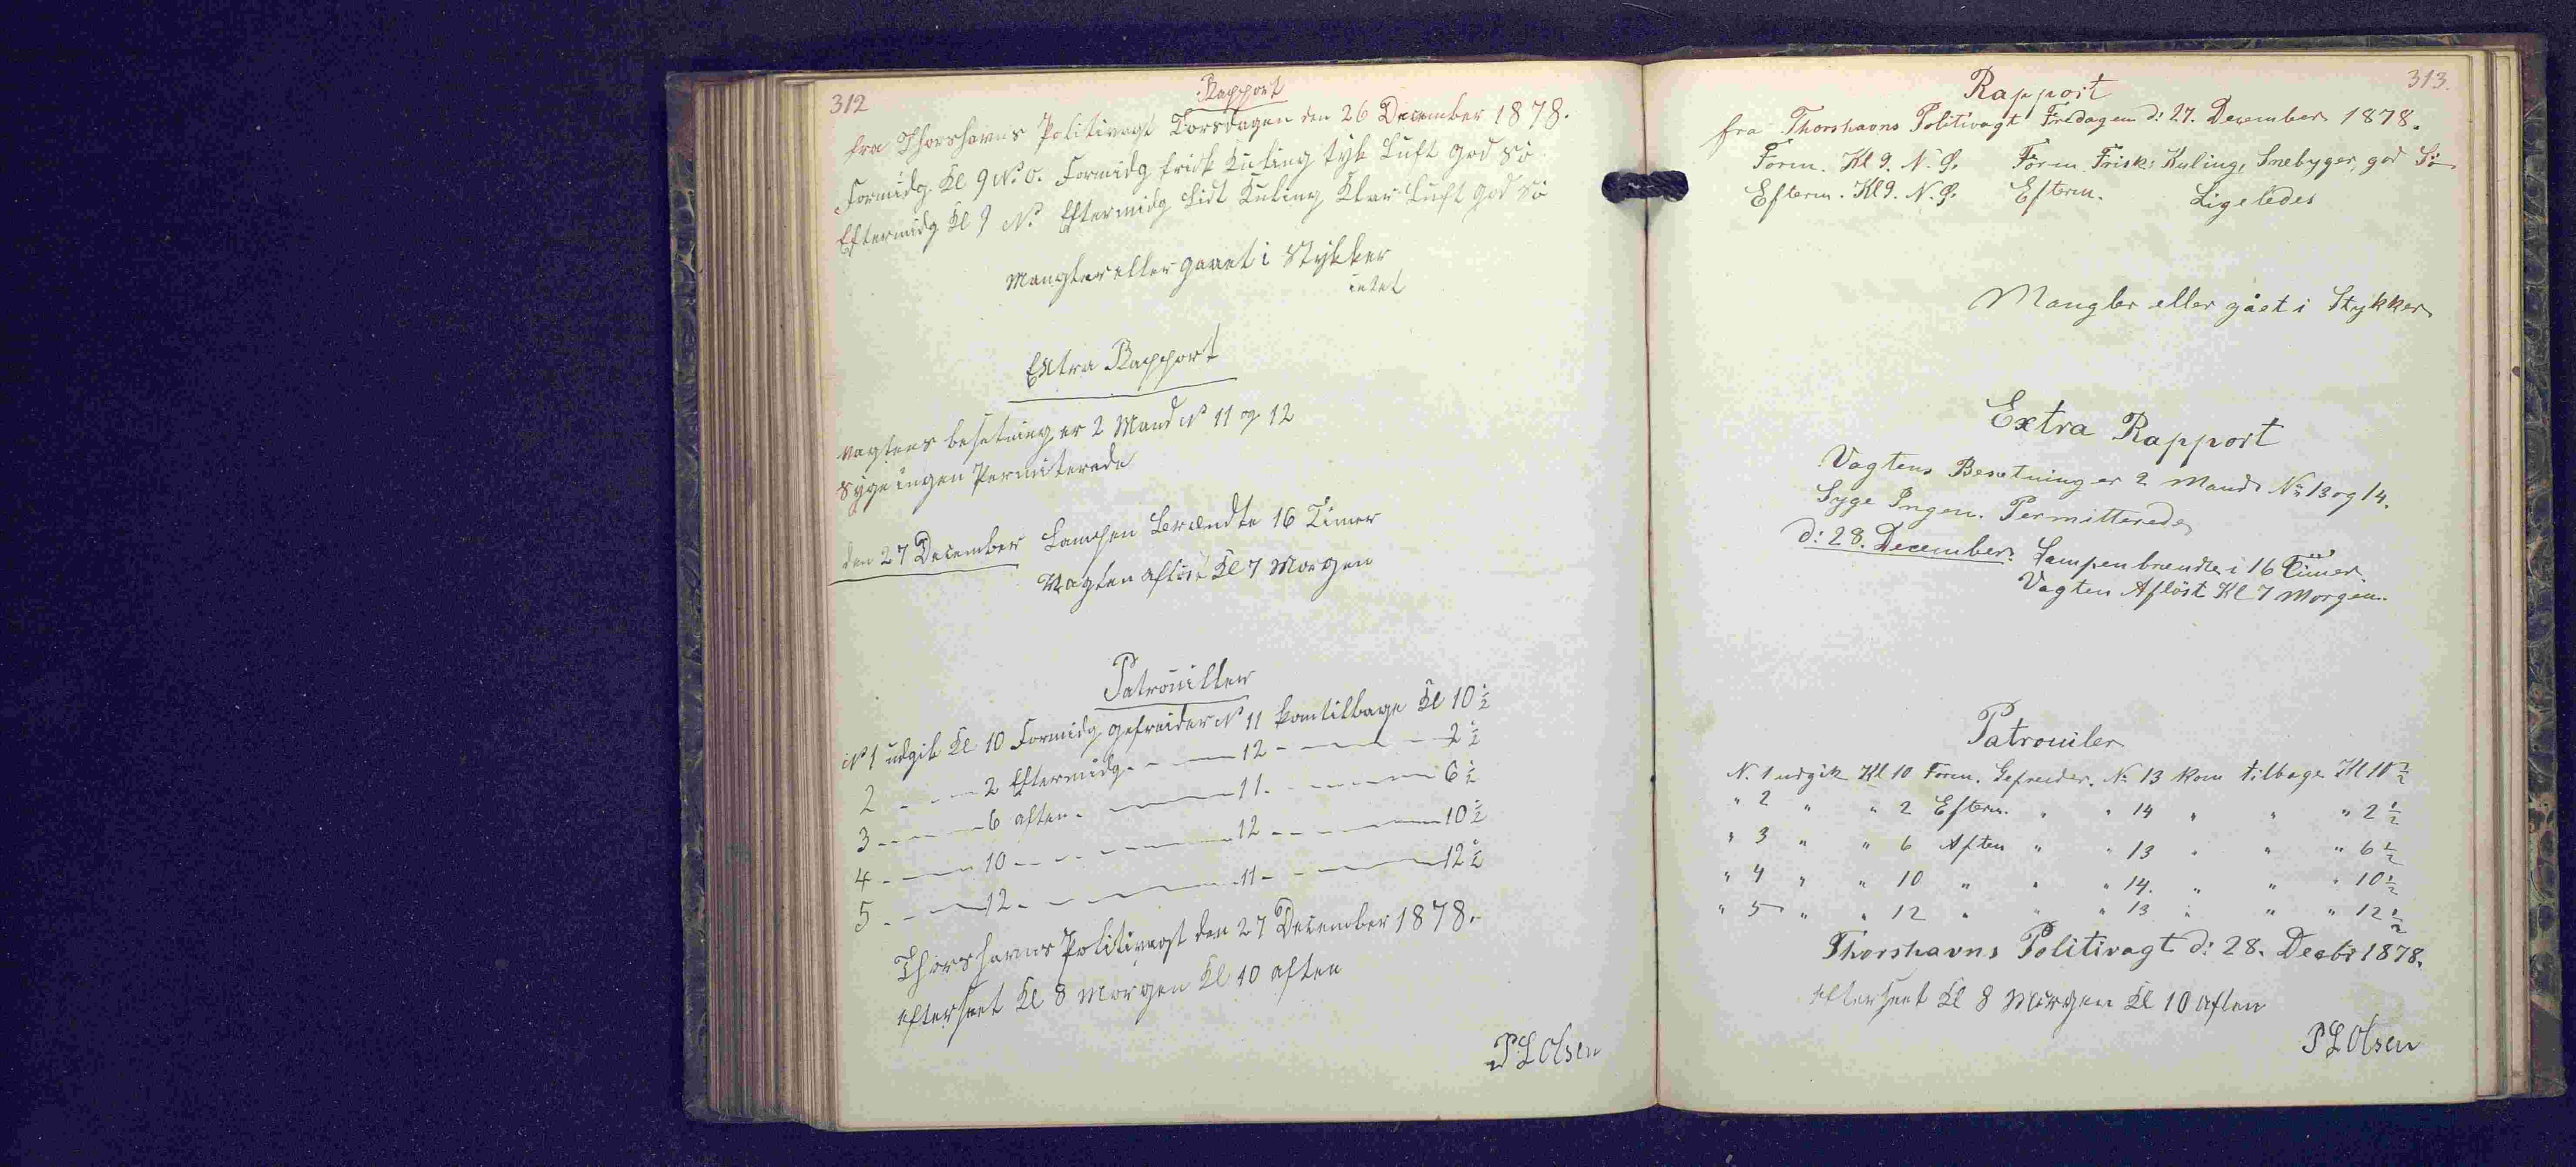 312
Rapport
fra Thorshavns Politivagt Torsdagen den 26 December 1878.
Formidg. Kl 9 N.O. Formidg frisk Kuling tyk Luft god Sö
Eftermidg Kl 9 N. Eftermidg Lidt Kuling Klar Luft god Sö
Mangler eller gaaet i Stykker
intet
Extra Rapport
Vagtens besetning er 2 Mand N 11 og 12
Syge ingen Permiterede
den 27 December Lampen Brændte 16 Timer
Vagten afløst Kl 7 Morgen
Patrouiller
N 1 udgik Kl 10 Formidg gefreider N 11 kom tilbage Kl 10 1/2
2 - - - 2 Eftermidg - - 12 - - - 2 1/2
3 - - - 6 aften - - 11 - - - 6 1/2
4 - - - 10 - - - 12 - - - 10 1/2
5 - - - 12 - - - 11 - - - 12 1/2
Thorshavns Politivagt den 27 December 1878.
efterseet Kl 8 Morgen Kl 10 aften
P L Olsen
313.
Rapport
fra Thorshavns Politivagt Fredagen d: 27. December 1878.
Form. Kl 9. N. Ø. Form. Frisk Kuling, Snebyger, god Sö
Efterm. Kl 9. N. Ø. Efterm. Ligeledes
Mangler eller gået i Stykker
Extra Rapport
Vagtens Besetning er 2 Mand. No 13 og 14.
Syge Ingen. Permitterede
d: 28. December. Lampen brændte i 16 Timer.
Vagten Aflöst Kl 7 Morgen.
Patrouiler
N. 1 udgik Kl 10 Form. Gefreider. No 13 kom tilbage Kl 10 1/2
" 2 " " 2 Efterm. " " 14 " " " 2 1/2
" 3 " " 6 Aften " " 13 " " " 6 1/2
" 4 " " 10 " " " 14. " " " 10 1/2
" 5 " " 12 " " " 13 " " " 12 1/2
Thorshavns Politivagt d: 28. Decbr 1878.
efterseet Kl 8 Morgen Kl 10 Aften
P L Olsen